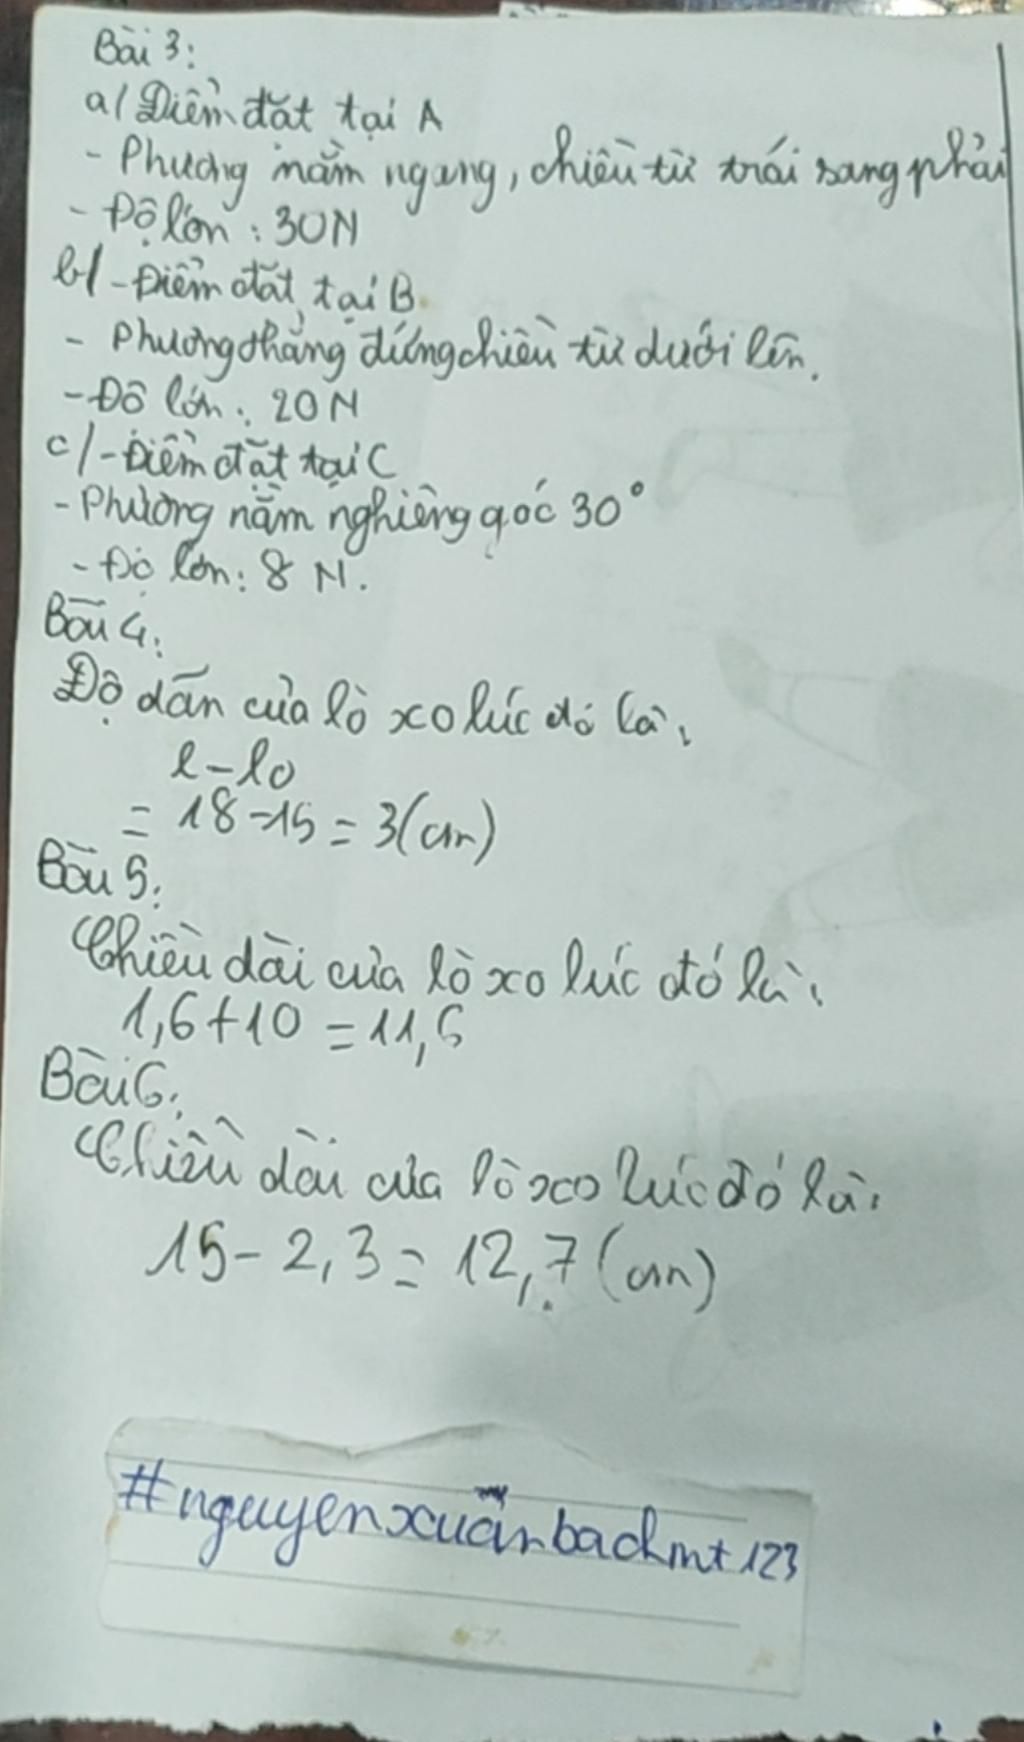 Bài 3:
a/ Điểm đặt tại A
- Phương nằm ngang, chiều từ trái sang phải
- Độ lớn: 30N
b/ - Điểm đặt tại B
- Phương thẳng đứng chiều từ dưới lên.
- Độ lớn: 20 N
c/ - Điểm đặt tại C
- Phương nằm nghiêng góc 30°
- Độ lớn: 8 N.
Bài 4:
Độ dãn của lò xo lúc đó là:
l - l0
= 18 - 15 = 3 (cm)
Bài 5:
Chiều dài của lò xo lúc đó là:
1,6 + 10 = 11,6
Bài 6:
Chiều dài của lò xo lúc đó là:
15 - 2,3 = 12,7 (cm)
#nguyenxuânbachmt123